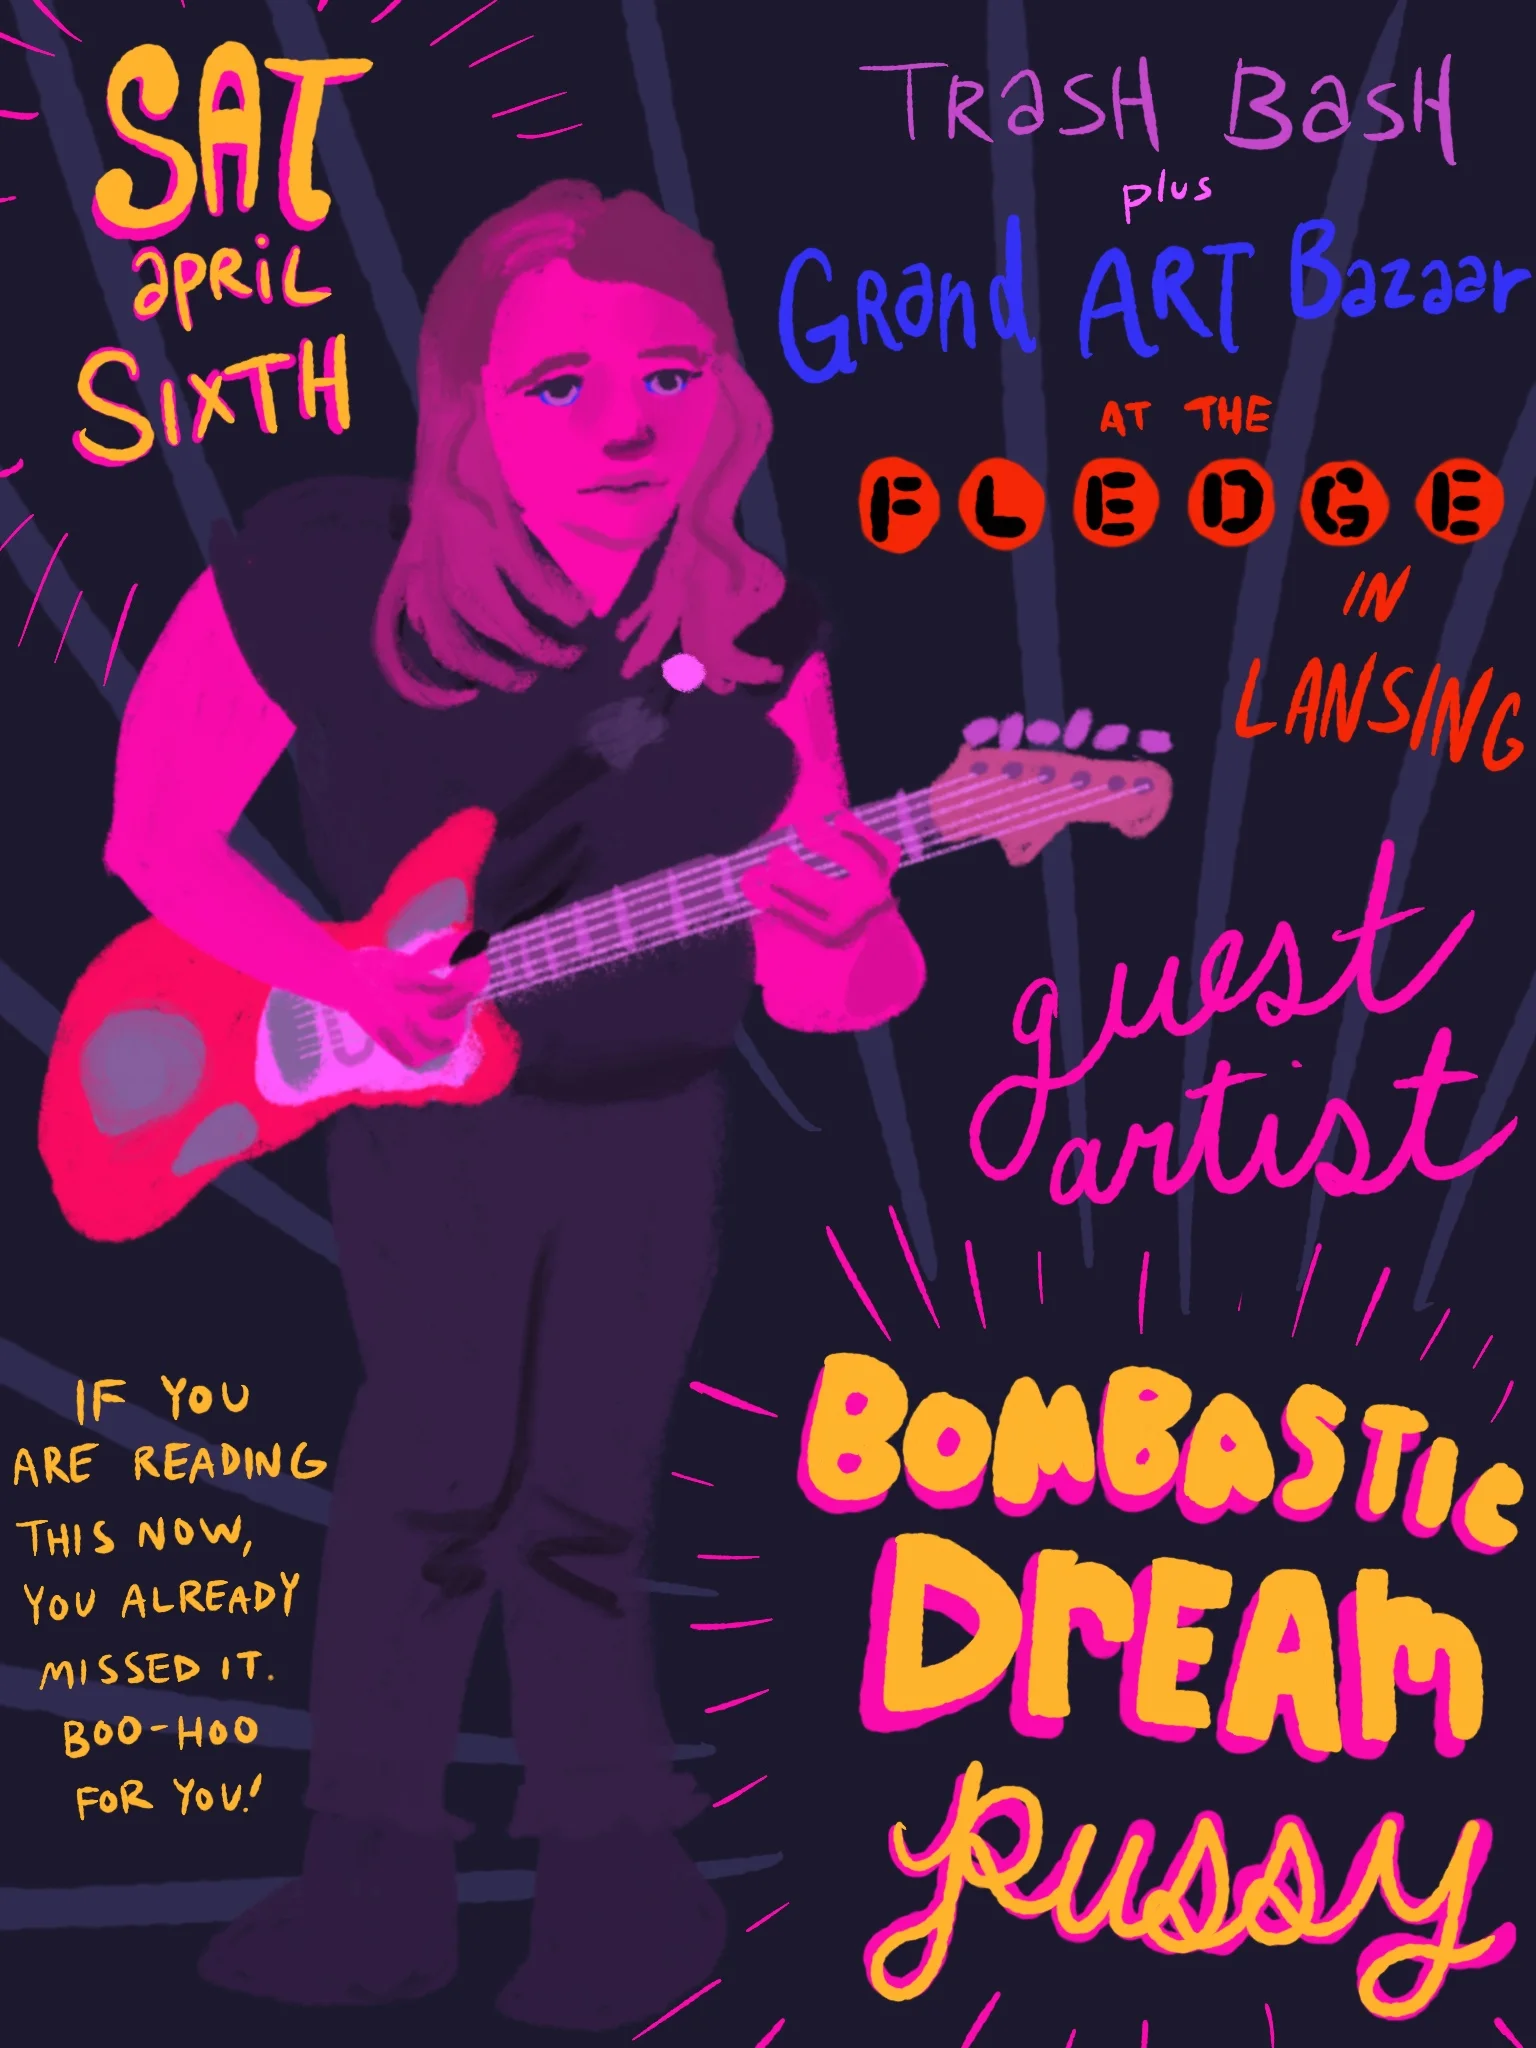 SAT
april
SIXTH
TRaSH BaSH
plus
GRand ART Bazaar
AT THE
FLEDGE
IN
LANSING
guest
artist
BOMBASTIC
DrEAm
pussy
IF YOU
ARE READING
THIS NOW,
YOU ALREADY
MISSED IT.
BOO-HOO
FOR YOU!